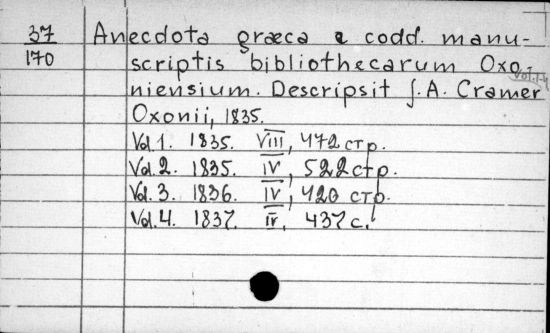 37 Anecdota græca e codd. manu-
170 scriptis bibliothecarum Oxo-
Vol. 1-4
niensium. Descripsit J. A. Cramer
Oxonii, 1835.
Vol. 1. 1835. VIII, 472 стр.
Vol. 2. 1835. IV, 522 стр.
Vol. 3. 1836. IV, 420 стр.
Vol. 4. 1837. IV, 437 с.